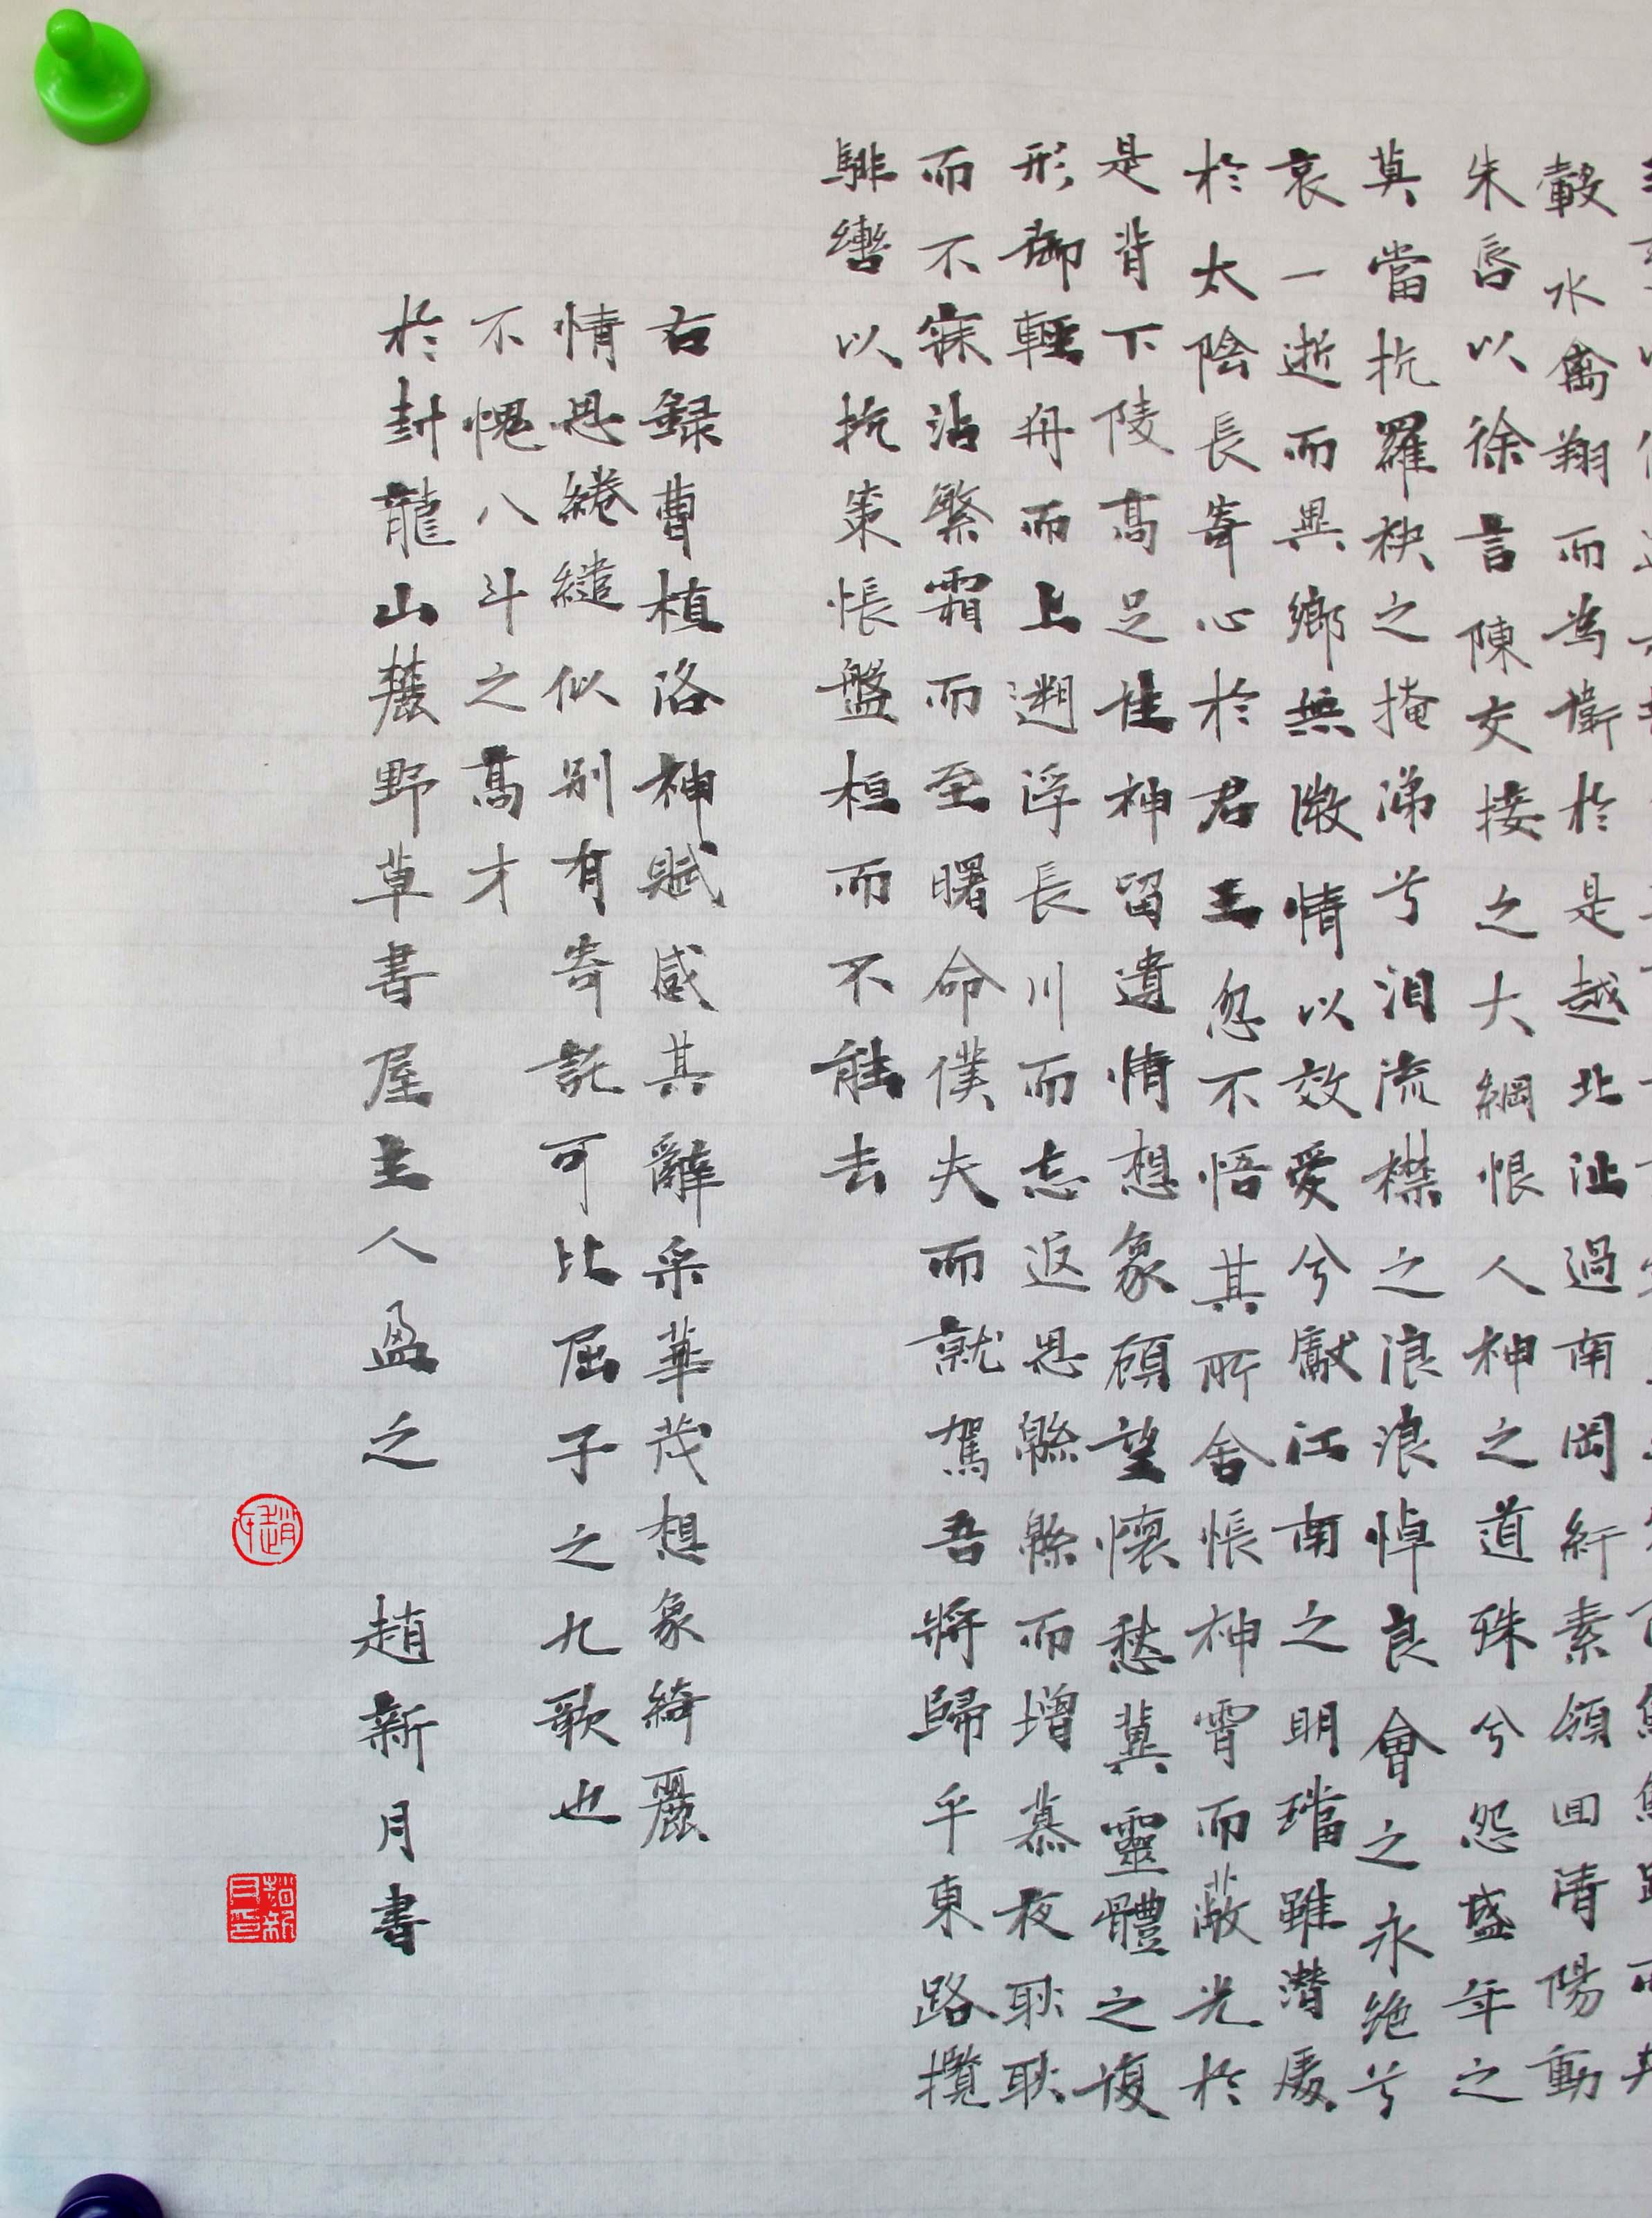 轂水禽翔而為衛於是越北沚過南岡紆素領回清陽動
朱唇以徐言陳交接之大綱恨人神之道殊兮怨盛年之
莫當抗羅袂之掩涕兮淚流襟之浪浪悼良會之永絕兮
哀一逝而異鄉無微情以效愛兮獻江南之明璫雖潛處
於太陰長寄心於君王忽不悟其所舍悵神霄而蔽光於
是背下陵高足往神留遺情想象顧望懷愁冀靈體之復
形御輕舟而上遡浮長川而忘返思緜緜而增慕夜耿耿
而不寐沾繁霜而至曙命僕夫而就駕吾將歸乎東路攬
騑轡以抗策悵盤桓而不能去
右録曹植洛神賦感其辭采華茂想象綺麗
情思綣繾似別有寄託可比屈子之九歌也
不愧八斗之高才
於封龍山麓野草書屋主人盈之 趙新月書